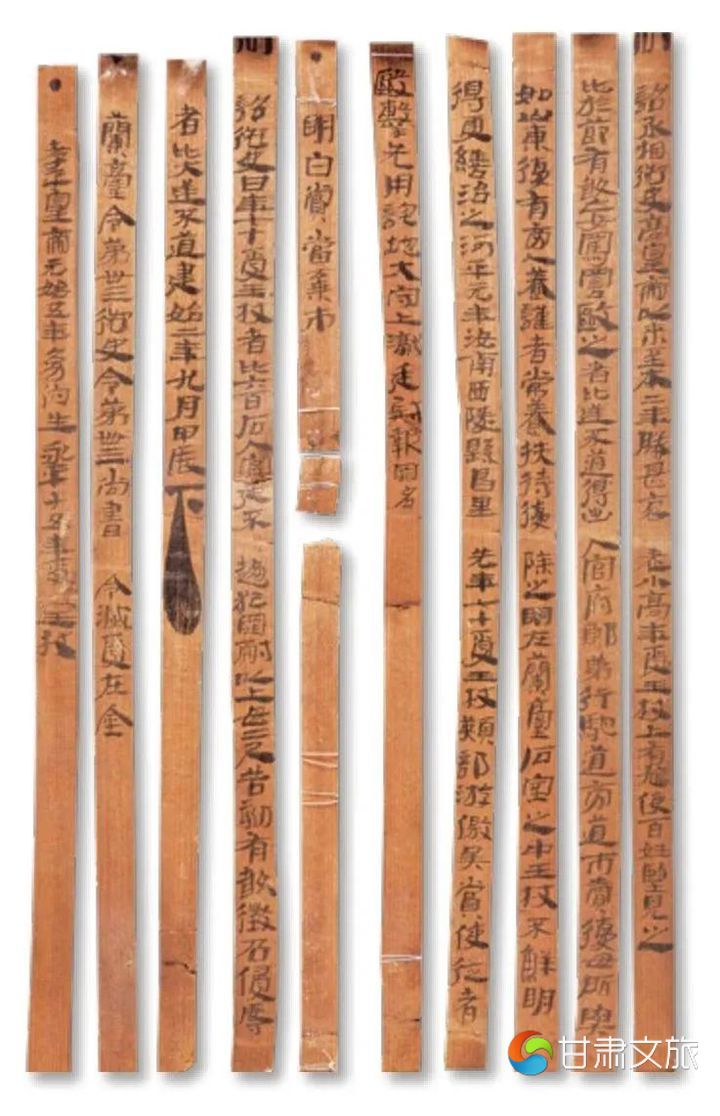 制詔丞相御史高皇帝以來至本二年勝甚哀老小高年受王杖上有鳩使百姓望見之
比於節有敢妄罵詈毆之者比逆不道得出入官府郎第行馳道旁道市賣復毋所與
如山東復有旁人養謹者常養扶持復除之明在蘭臺石室之中王杖不鮮明
得更繕治之河平元年汝南西陵縣昌里先年七十受王杖熲部游徼吳賞使從者
毆擊先用詫地大守上讞廷尉報罪名
明白賞當棄市
制詔御史曰年七十受王杖者比六百石入官廷不趨犯罪耐以上毋二尺告劾有敢徵召侵辱
者比大逆不道建始二年九月甲辰下
蘭臺令第卅三御史令第卌三尚書令滅受在金
孝平皇帝元始五年幼伯生永平十五年受王杖
甘肃文旅